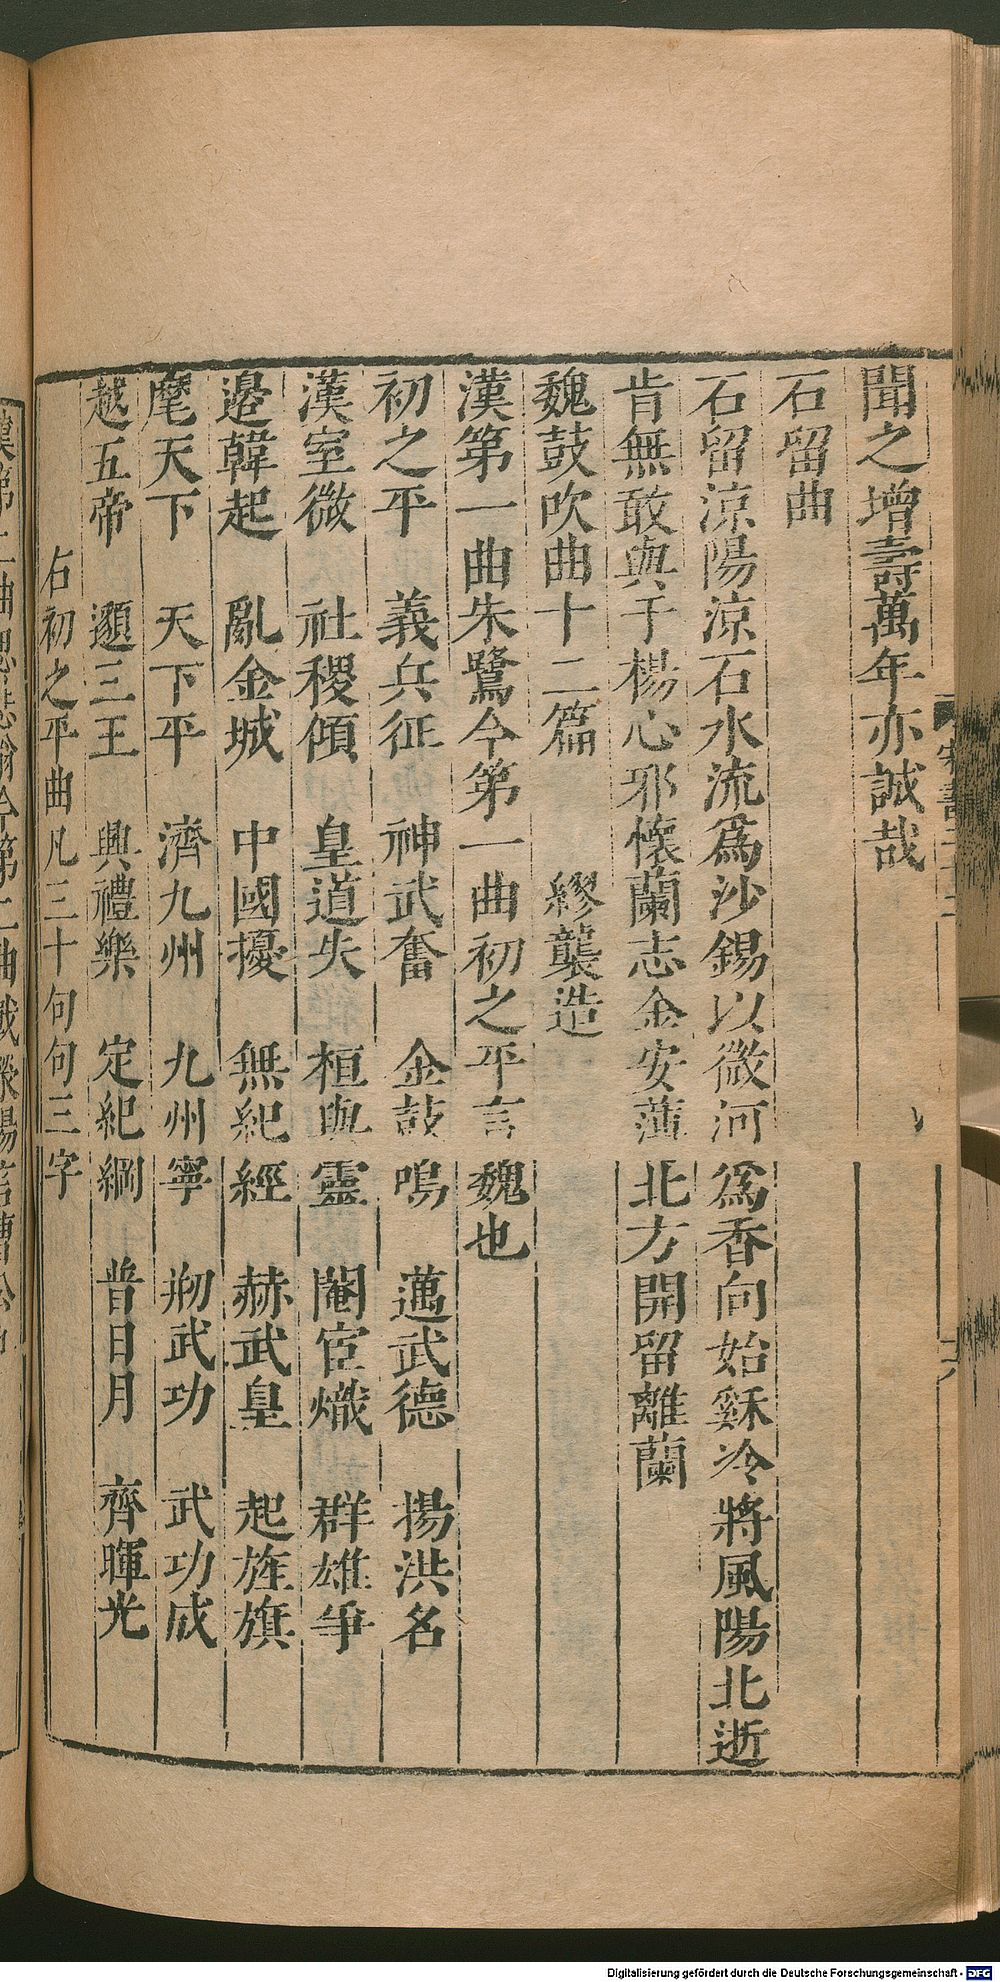 聞之增壽萬年亦誠哉
石留曲
石留涼陽涼石水流爲沙錫以微河爲香向始穌冷將風陽北逝
肯無敢與于楊心邪懷蘭志金安薄北方開留離蘭
魏鼓吹曲十二篇　繆襲造
漢第一曲朱鷺今第一曲初之平言魏也
初之平　義兵征　神武奮　金鼓鳴　邁武德　揚洪名
漢室微　社稷傾　皇道失　桓與靈　閹宦熾　群雄爭
邊韓起　亂金城　中國擾　無紀經　赫武皇　起旌旗
麾天下　天下平　濟九州　九州寧　剏武功　武功成
越五帝　邈三王　興禮樂　定紀綱　普日月　齊暉光
右初之平曲凡三十句句三字
Digitalisierung gefördert durch die Deutsche Forschungsgemeinschaft - DFG